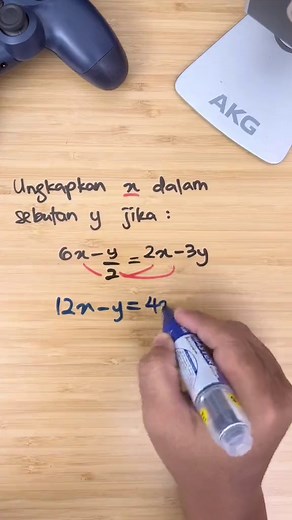 AKG
Ungkapkan x dalam
sebutan y jika :
6x - y/2 = 2x - 3y
12x - y = 4x